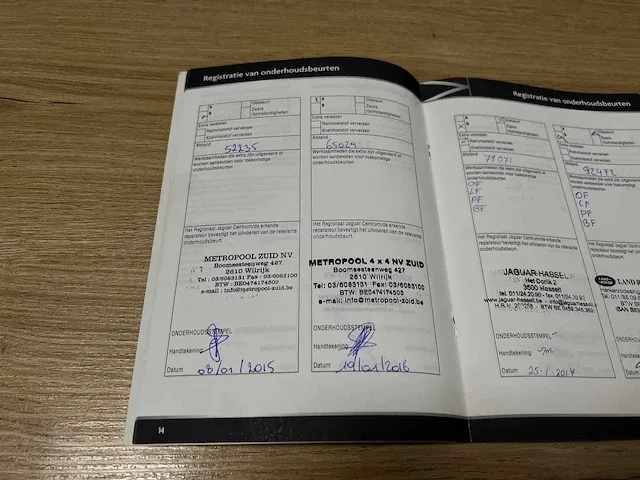 Registratie van onderhoudsbeurten
Oliebeurt
Zware omstandigheden
Extra vereisten
Remvloeistof verversen
Koelvloeistof verversen
Afstand 52235
Werkzaamheden die extra zijn uitgevoerd of
worden aanbevolen voor toekomstige
onderhoudsbeurt
Het Regionaal Jaguar Centrum/de erkende
reparateur bevestigt het uitvoeren van de relevante
onderhoudsbeurt.
METROPOOL ZUID NV
Boomsesteenweg 427
2610 Wilrijk
Tel : 03/6083131 Fax : 03/6083100
BTW : BE0474174503
e-mail : info@metropool-zuid.be
ONDERHOUDSSTEMPEL
Handtekening
Datum 08/01/2015
Oliebeurt
Zware omstandigheden
Extra vereisten
Remvloeistof verversen
Koelvloeistof verversen
Afstand 65024
Werkzaamheden die extra zijn uitgevoerd of
worden aanbevolen voor toekomstige
onderhoudsbeurt
Het Regionaal Jaguar Centrum/de erkende
reparateur bevestigt het uitvoeren van de relevante
onderhoudsbeurt.
METROPOOL 4 x 4 NV ZUID
Boomsesteenweg 427
2610 Wilrijk
Tel: 03/6083131 Fax : 03/6083100
BTW: BE0474174503
e-mail: info@metropool-zuid.be
ONDERHOUDSSTEMPEL
Handtekening
Datum 19/01/2016
14
Registratie van onderhoudsbeurten
Oliebeurt
Zware omstandigheden
Extra vereisten
Remvloeistof verversen
Koelvloeistof verversen
Afstand 79071
Werkzaamheden die extra zijn uitgevoerd of
worden aanbevolen voor toekomstige
onderhoudsbeurt
OF
LF
PF
BF
Het Regionaal Jaguar Centrum/de erkende
reparateur bevestigt het uitvoeren van de relevante
onderhoudsbeurt.
JAGUAR HASSEL
Het Dorlik 2
3500 Hasselt
ONDERHOUDSSTEMPEL
Handtekening
Datum 25-1-2017
Extra vereisten
Remvloeistof
Koelvloeistof
Afstand 92472
OF
LF
PF
BF
Het Regionaal
reparateur
onderhoudsbeurt
LAND
ONDERHOUDS
Handtekening
Datum